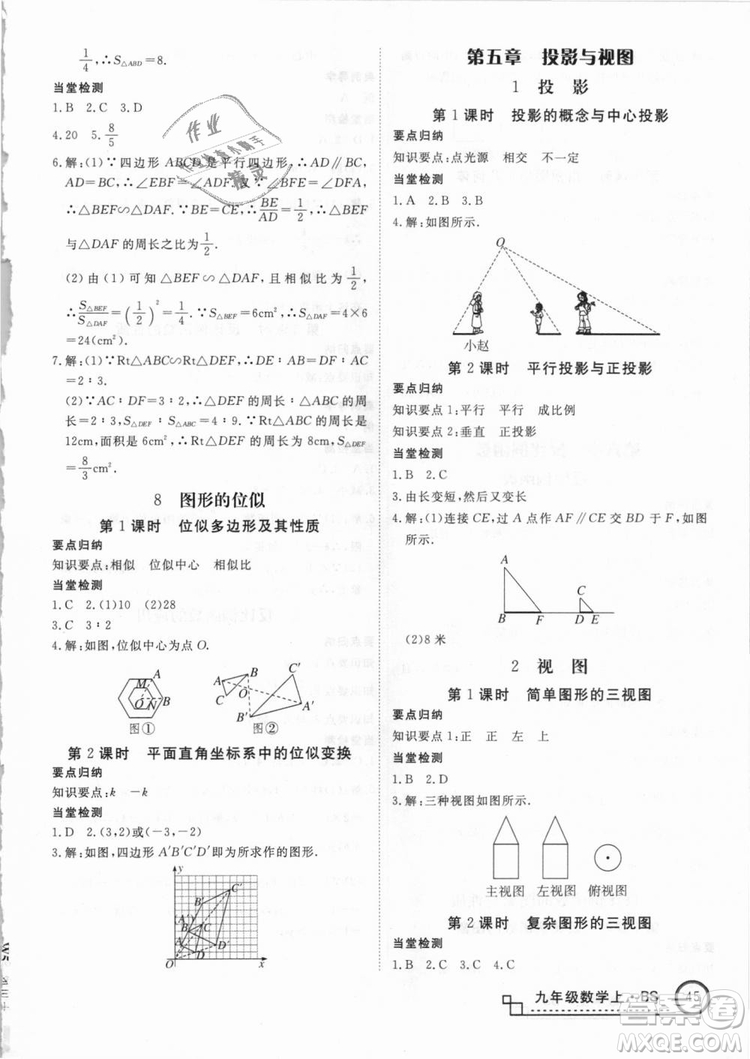 1/4, ∴S△ABD=8.
当堂检测
1.B 2.C 3.D
4.20 5.8/5
6.解:(1)∵四边形ABCD是平行四边形,∴AD∥BC,
AD=BC,∴∠BEF=∠FAD,∠EBF=∠FDA,
∴△BEF∽△DAF,∵BE=CE,∴BE/AD=1/2,∴△BEF
与△DAF的周长之比为1/2.
(2)由(1)可知△BEF∽△DAF,且相似比为1/2,
∴S△BEF/S△DAF=(1/2)²=1/4,∵S△BEF=6cm²,∴S△DAF=4×6
=24(cm²).
7.解:(1)∵Rt△ABC∽Rt△DEF,∴AC∶DF=6∶4=
3∶2.
(2)∵AC∶DF=3∶2,∴△ABC与△DEF的周长比为
3∶2,∴S△ABC∶S△DEF=4∶9,∵Rt△ABC的周长是
12cm,面积是6cm²,∴Rt△DEF的周长为8cm,面积为
8/3cm².
8 图形的位似
第1课时 位似多边形及其性质
要点归纳
知识要点:相似 位似中心 相似比
当堂检测
1.C 2.(1)10 (2)28
3.C 3∶2
4.解:如图,位似中心为点O.
M A O N B
图①
A B C′ C O A′ B′
图②
第2课时 平面直角坐标系中的位似变换
要点归纳
知识要点:k −k
当堂检测
1.D 2.(3,2)或(−3,−2)
3.解:如图,四边形A′B′C′D′即为所求作的图形.
y
B′ C′
(A′) B C
A D D′
O x
第五章 投影与视图
1 投影
第1课时 投影的概念与中心投影
要点归纳
知识要点:点光源 相交 不一定
当堂检测
1.A 2.B 3.B
4.解:如图所示.
O
小赵
第2课时 平行投影与正投影
要点归纳
知识要点1:平行 成比例
知识要点2:垂直 正投影
当堂检测
1.B 2.C
3.由长变短,然后又变长
4.解:(1)连接CE,过A点作AF∥CE交BD于F,如图
所示.
A
C
B F D E
(2)8米
2 视图
第1课时 简单图形的三视图
要点归纳
知识要点:正 正 左 上
当堂检测
1.B 2.C
3.解:三种视图如图所示.
主视图 左视图 俯视图
第2课时 复杂图形的三视图
当堂检测
1.B 2.C
九年级数学上·BS 45
作业
精灵
答案
MXQE.COM